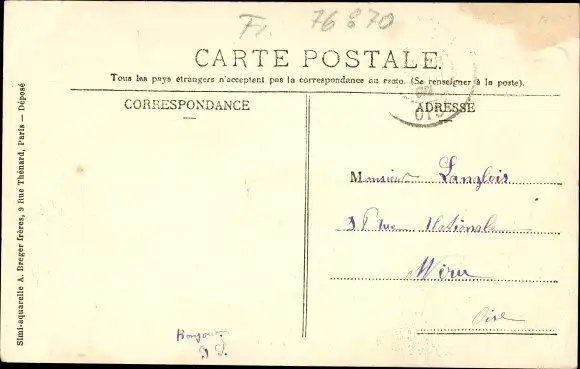 Fr. 76870
CARTE POSTALE.
Tous les pays étrangers n'acceptent pas la correspondance au recto. (Se renseigner à la poste).
CORRESPONDANCE
ADRESSE
Simi-aquarelle A. Breger frères, 9 Rue Thénard, Paris — Déposé
Monsieur Langlois
Rue Nationale
Méru
Oise
Bonjour